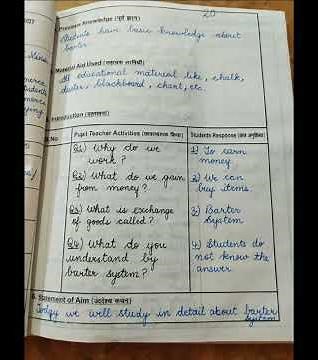 20
Previous Knowledge (पूर्व ज्ञान)
Students have basic knowledge about
barter
Material Aid Used (सहायक सामग्री)
All educational material like, chalk,
duster, blackboard, chart, etc.
Introduction (प्रस्तावना)
No
Pupil Teacher Activities
Students Response
Q.1) Why do we
work?
1) To earn
money
Q.2) What do we gain
from money?
2) We can
buy items
Q.3) What is exchange
of goods called?
3) Barter
System
Q.4) What do you
understand by
barter system?
4) Students do
not know the
answer
8. Statement of Aim (उद्देश्य कथन)
Today we will study in detail about barter
system